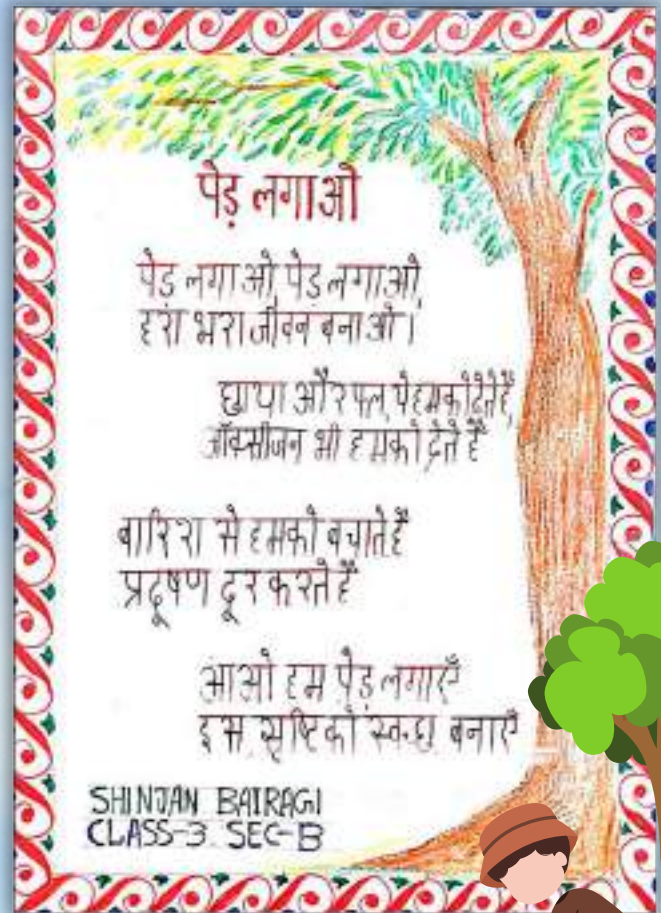 पेड़ लगाओ
पेड़ लगाओ, पेड़ लगाओ,
हरा भरा जीवन बनाओ।
छाया और फल, ये हमको देते हैं,
ऑक्सीजन भी हमको देते हैं
बारिश से हमको बचाते हैं
प्रदूषण दूर करते हैं
आओ हम पेड़ लगाएँ
इस सृष्टि को स्वच्छ बनाएँ
SHINJAN BAIRAGI
CLASS-3 SEC-B